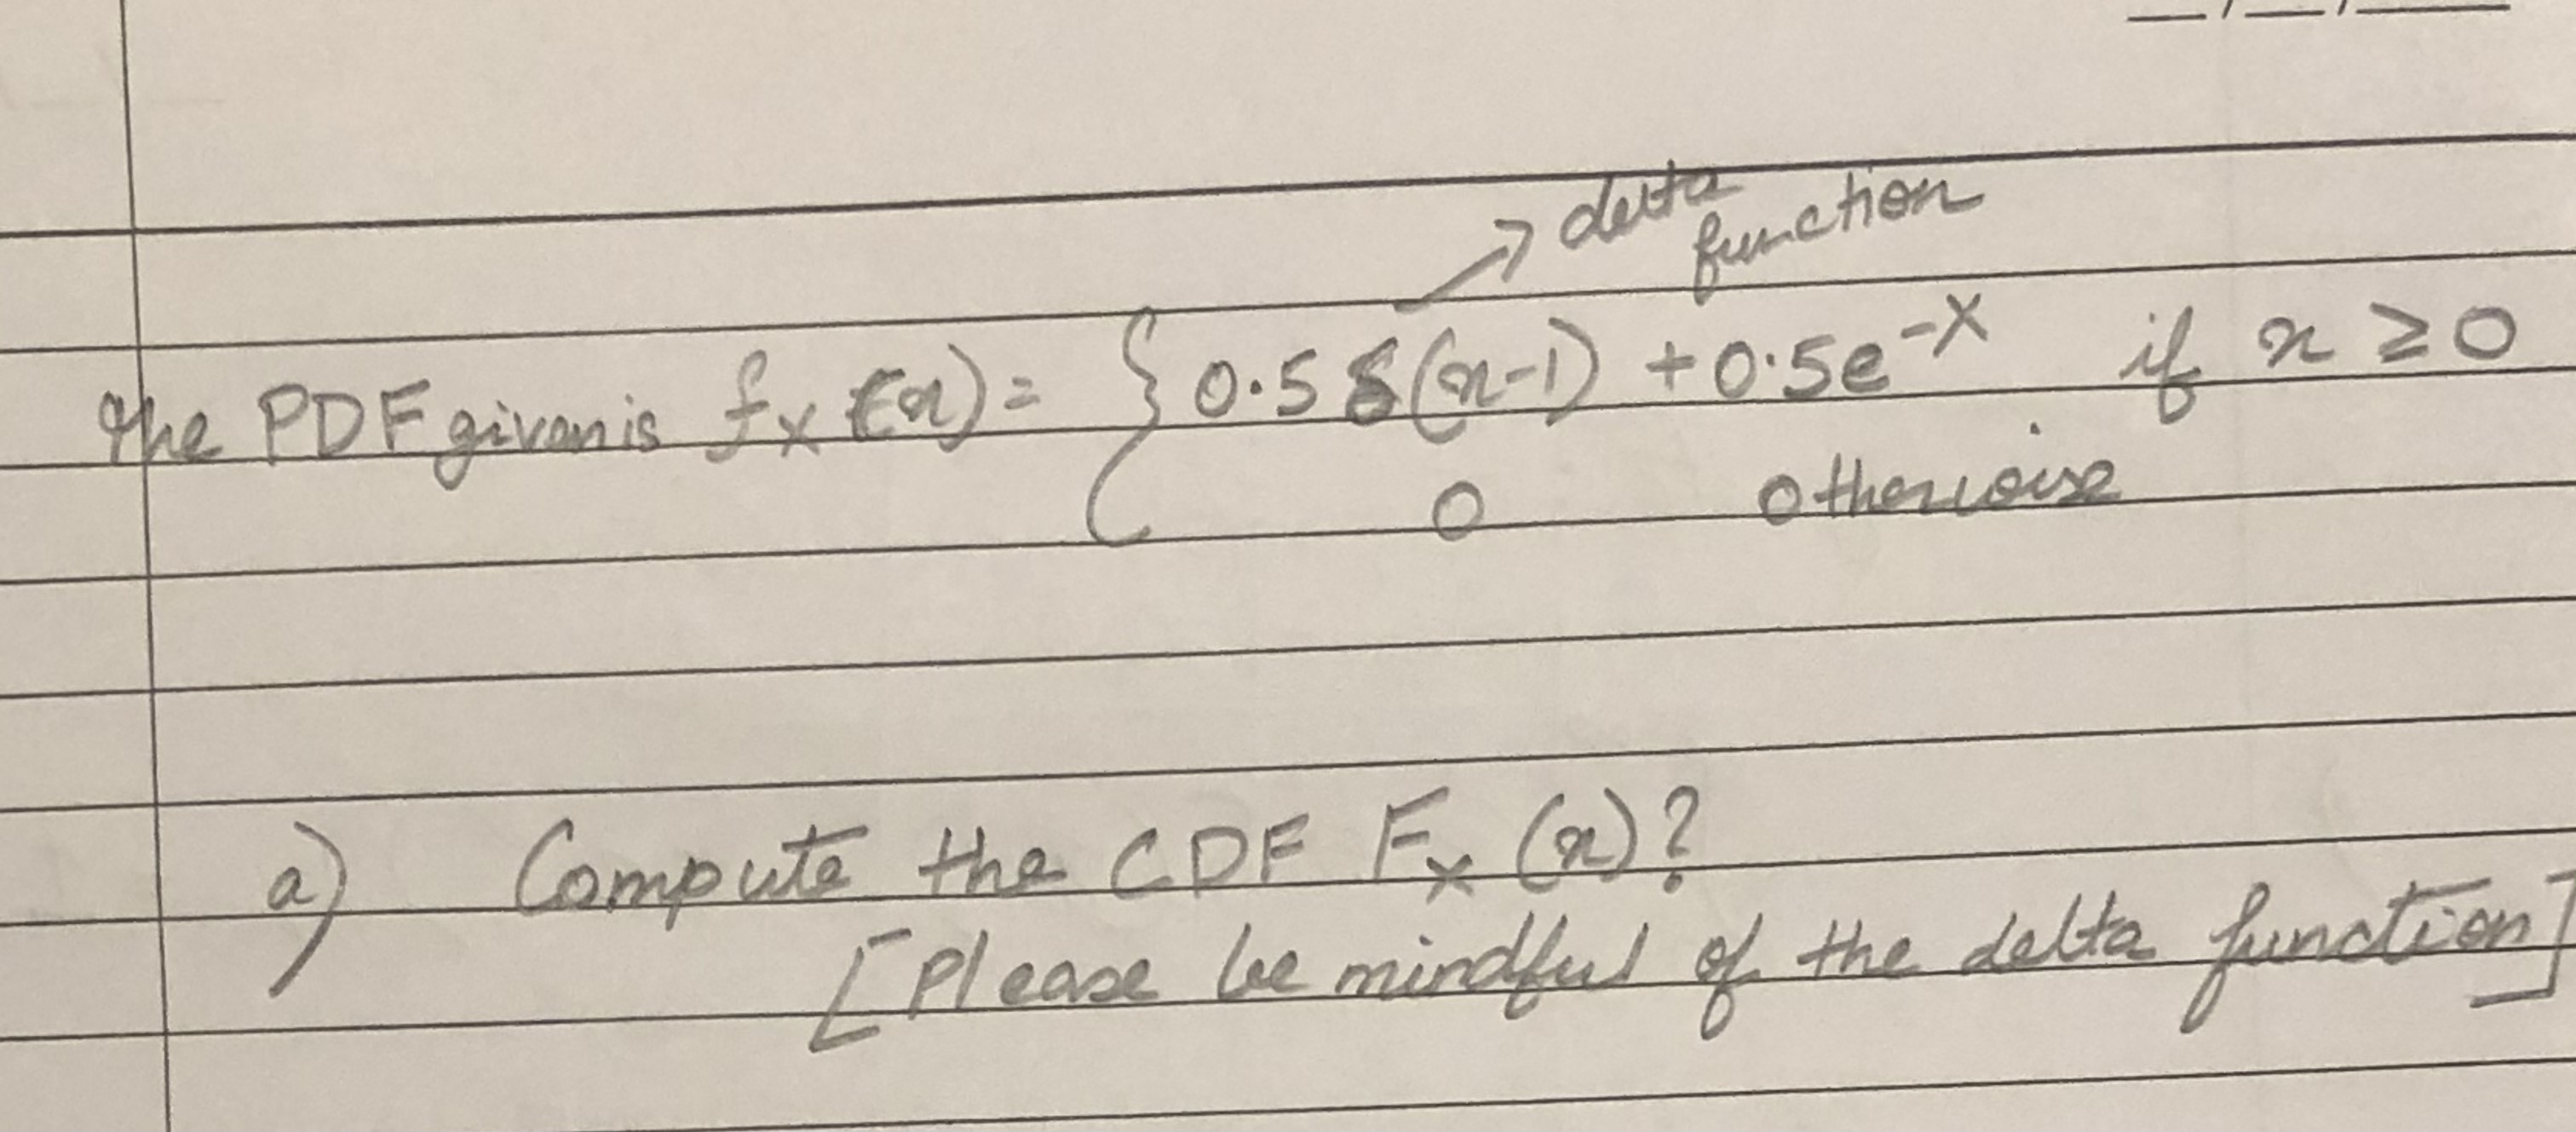 delta
function
The PDF given is fx (x) = { 0.5 δ(x-1) + 0.5e^-x if x ≥ 0
0 otherwise
a) Compute the CDF Fx (x)?
[Please be mindful of the delta function]